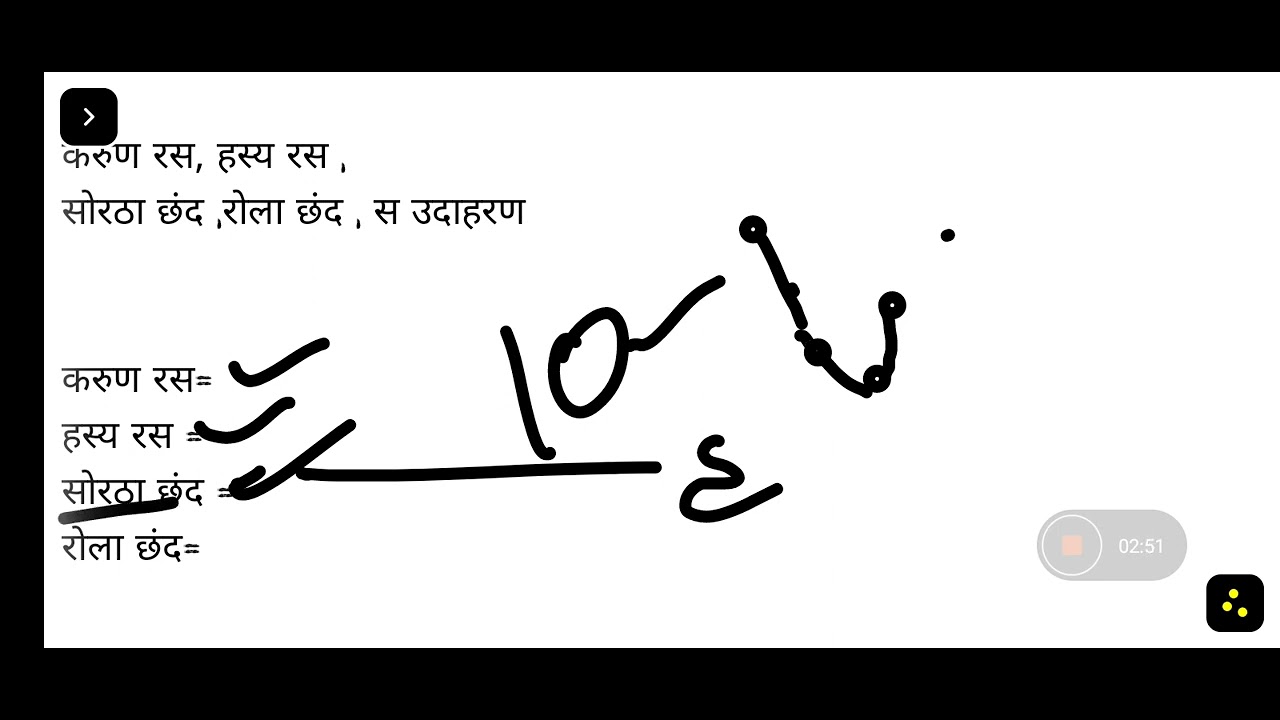 करुण रस, हस्य रस ,
सोरठा छंद ,रोला छंद , स उदाहरण
10
करुण रस=
हस्य रस =
सोरठा छंद =
रोला छंद=
02:51